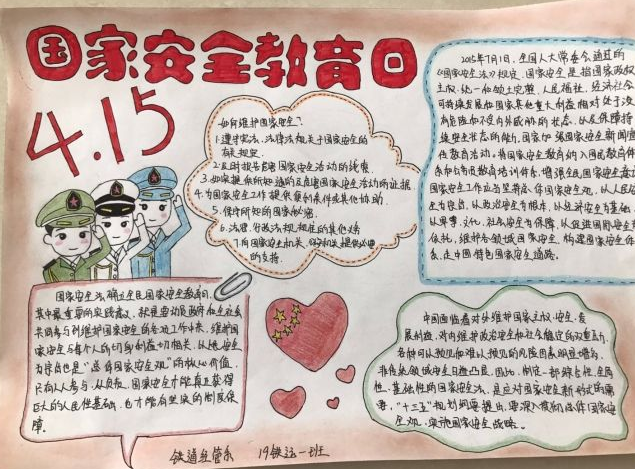 国家安全教育日
4.15
如何维护国家安全?
1.遵守宪法、法律法规关于国家安全的
有关规定.
2.及时报告危害国家安全活动的线索.
3.如实提供所知道的危害国家安全活动的证据
4.为国家安全工作提供便利条件或其他协助.
5.保守所知的国家秘密.
6.法律.行政法规规定的其他义务
7.向国家安全机关、提供必要
的支持.
2015年7月1日,全国人大常委会通过的
《国家安全法》规定,国家安全是指国家政权
主权、统一和领土完整、人民福祉、经济社会
可持续发展和国家其他重大利益相对处于没
有危险和不受内外威胁的状态,以及保障持
续安全状态的能力.国家加强国家安全新闻宣
传教育活动,将国家安全教育纳入国民教育体
系和公务员教育培训体系,增强全民国家安全意
国家安全工作应当坚持总体国家安全观,以人民
为宗旨,以政治安全为根本,以经济安全为基础,
以军事、文化、社会安全为保障,以促进国际安全
依托,维护各领域国家安全,构建国家安全体
系,走中国特色国家安全道路.
国家安全法确立全民国家安全教育日,
其中最重要的
共同参与到维护国家安全的各项工作中来,维护国
家安全与每个人的切身利益密切相关,以人民安全
为宗旨也是"总体国家安全观"的核心价值.
只有人人参与,人人负责,国家安全才能真正获得
巨大的人民性基础,也才能有坚实的制度保
障.
中国面临着对外维护国家主权、安全、发
展利益,对内维护政治安全和社会稳定的双重压力,
各种可以预见和难以预见的风险因素明显增多,
非传统领域安全日益凸显.因此,制定一部综合性、全局
性、基础性的国家安全法,是应对国家安全新形势的需
要."十三五"规划纲要提出,要深入贯彻总体国家安
全观,实施国家安全战略.
铁道经管系 19铁运一班